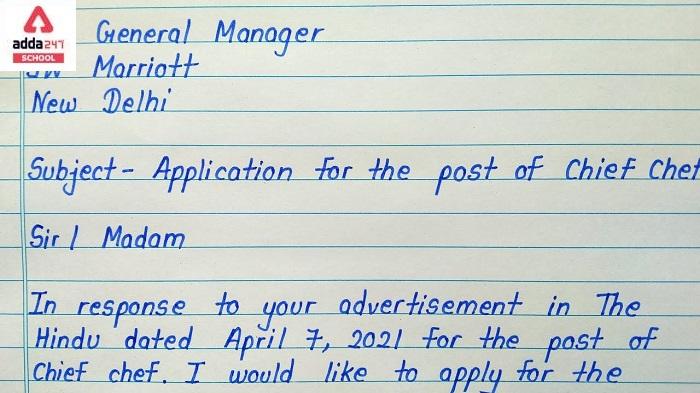 adda247
SCHOOL
General Manager
JW Marriott
New Delhi
Subject- Application for the post of Chief Chef
Sir / Madam
In response to your advertisement in The
Hindu dated April 7, 2021 for the post of
Chief chef. I would like to apply for the